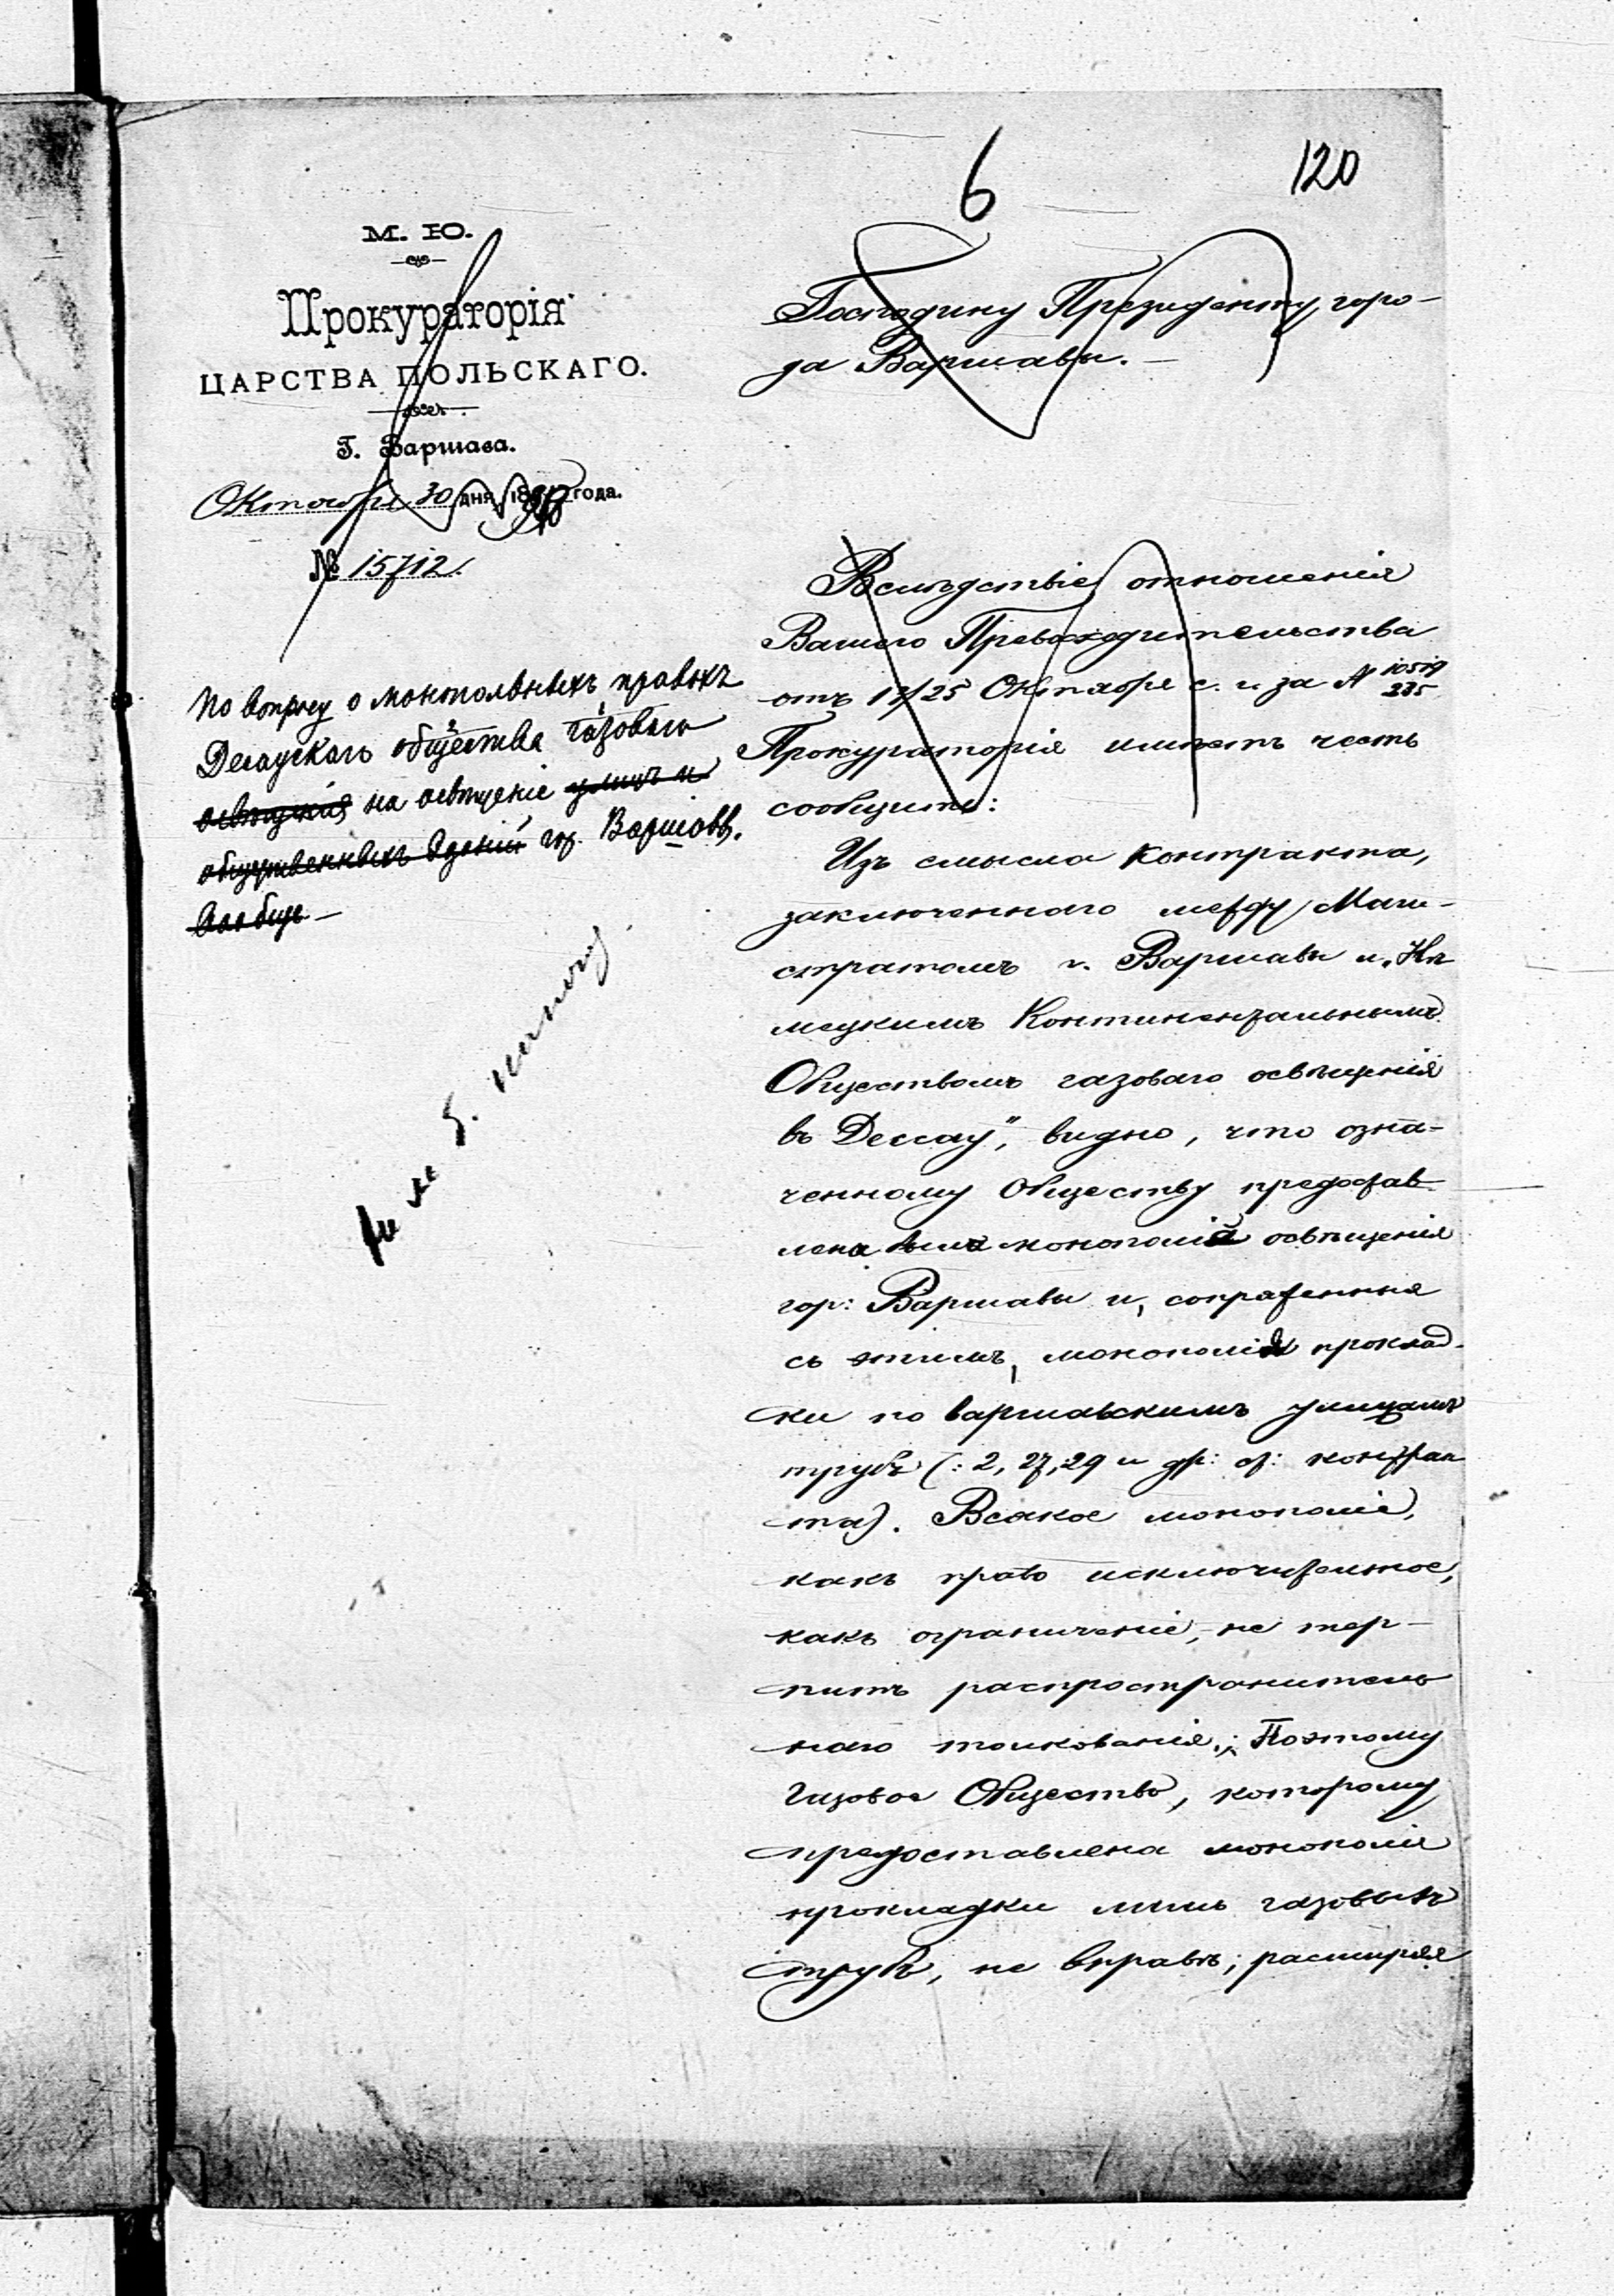 6
120
М. Ю.
Прокураторія
ЦАРСТВА ПОЛЬСКАГО.
Г. Варшава.
Октября 30 дня 18 года.
№ 15712.
По вопросу о монопольныхъ правахъ
Десаускаго общества газоваго
освѣщенія на освѣщеніе улицъ и
общественныхъ зданій гор. Варшавы.
Господину Президенту горо-
да Варшавы.
Вслѣдствіе отношенія
Вашего Превосходительства
отъ 13/25 Октября с. г. за № 10519/235
Прокураторія имѣетъ честь
сообщить:
Изъ смысла контракта,
заключеннаго между Маги-
стратомъ г. Варшавы и „Нѣ
мецкимъ Континентальнымъ
Обществомъ газоваго освѣщенія
въ Дессау", видно, что озна-
ченному Обществу предостав
лена монополія освѣщенія
гор: Варшавы и, сопряженная
съ этимъ, монополія проклад-
ки по варшавскимъ улицамъ
трубъ (: 2, 27, 29 и др: ст: контрак
та). Всякое монополіе,
какъ право исключительное,
какъ ограниченіе, не тер-
питъ распространитель
наго толкованія; Поэтому
Газовое Общество, которому
предоставлена монополія
прокладки лишь газовыхъ
трубъ, не вправѣ, расширяя